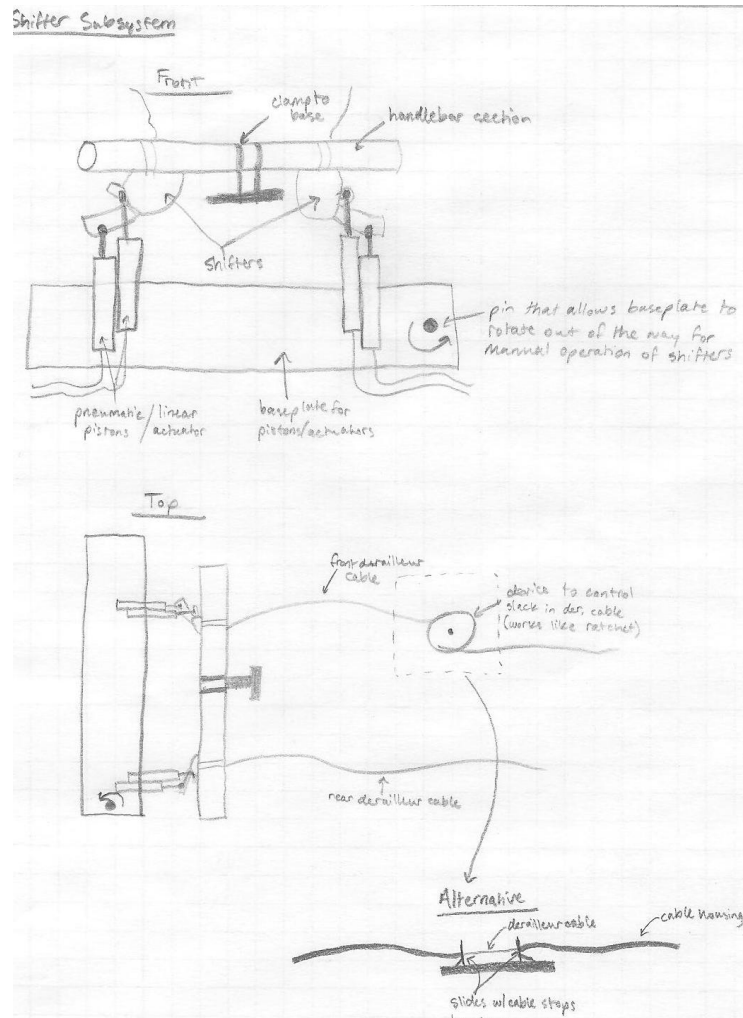 Shifter Subsystem
Front
clamp to
base
handlebar section
shifters
pin that allows baseplate to
rotate out of the way for
manual operation of shifters
pneumatic/linear
pistons/actuator
baseplate for
pistons/actuators
Top
front derailleur
cable
device to control
slack in der. cable
(works like ratchet)
rear derailleur cable
Alternative
derailleur cable
cable housing
slides w/cable stops